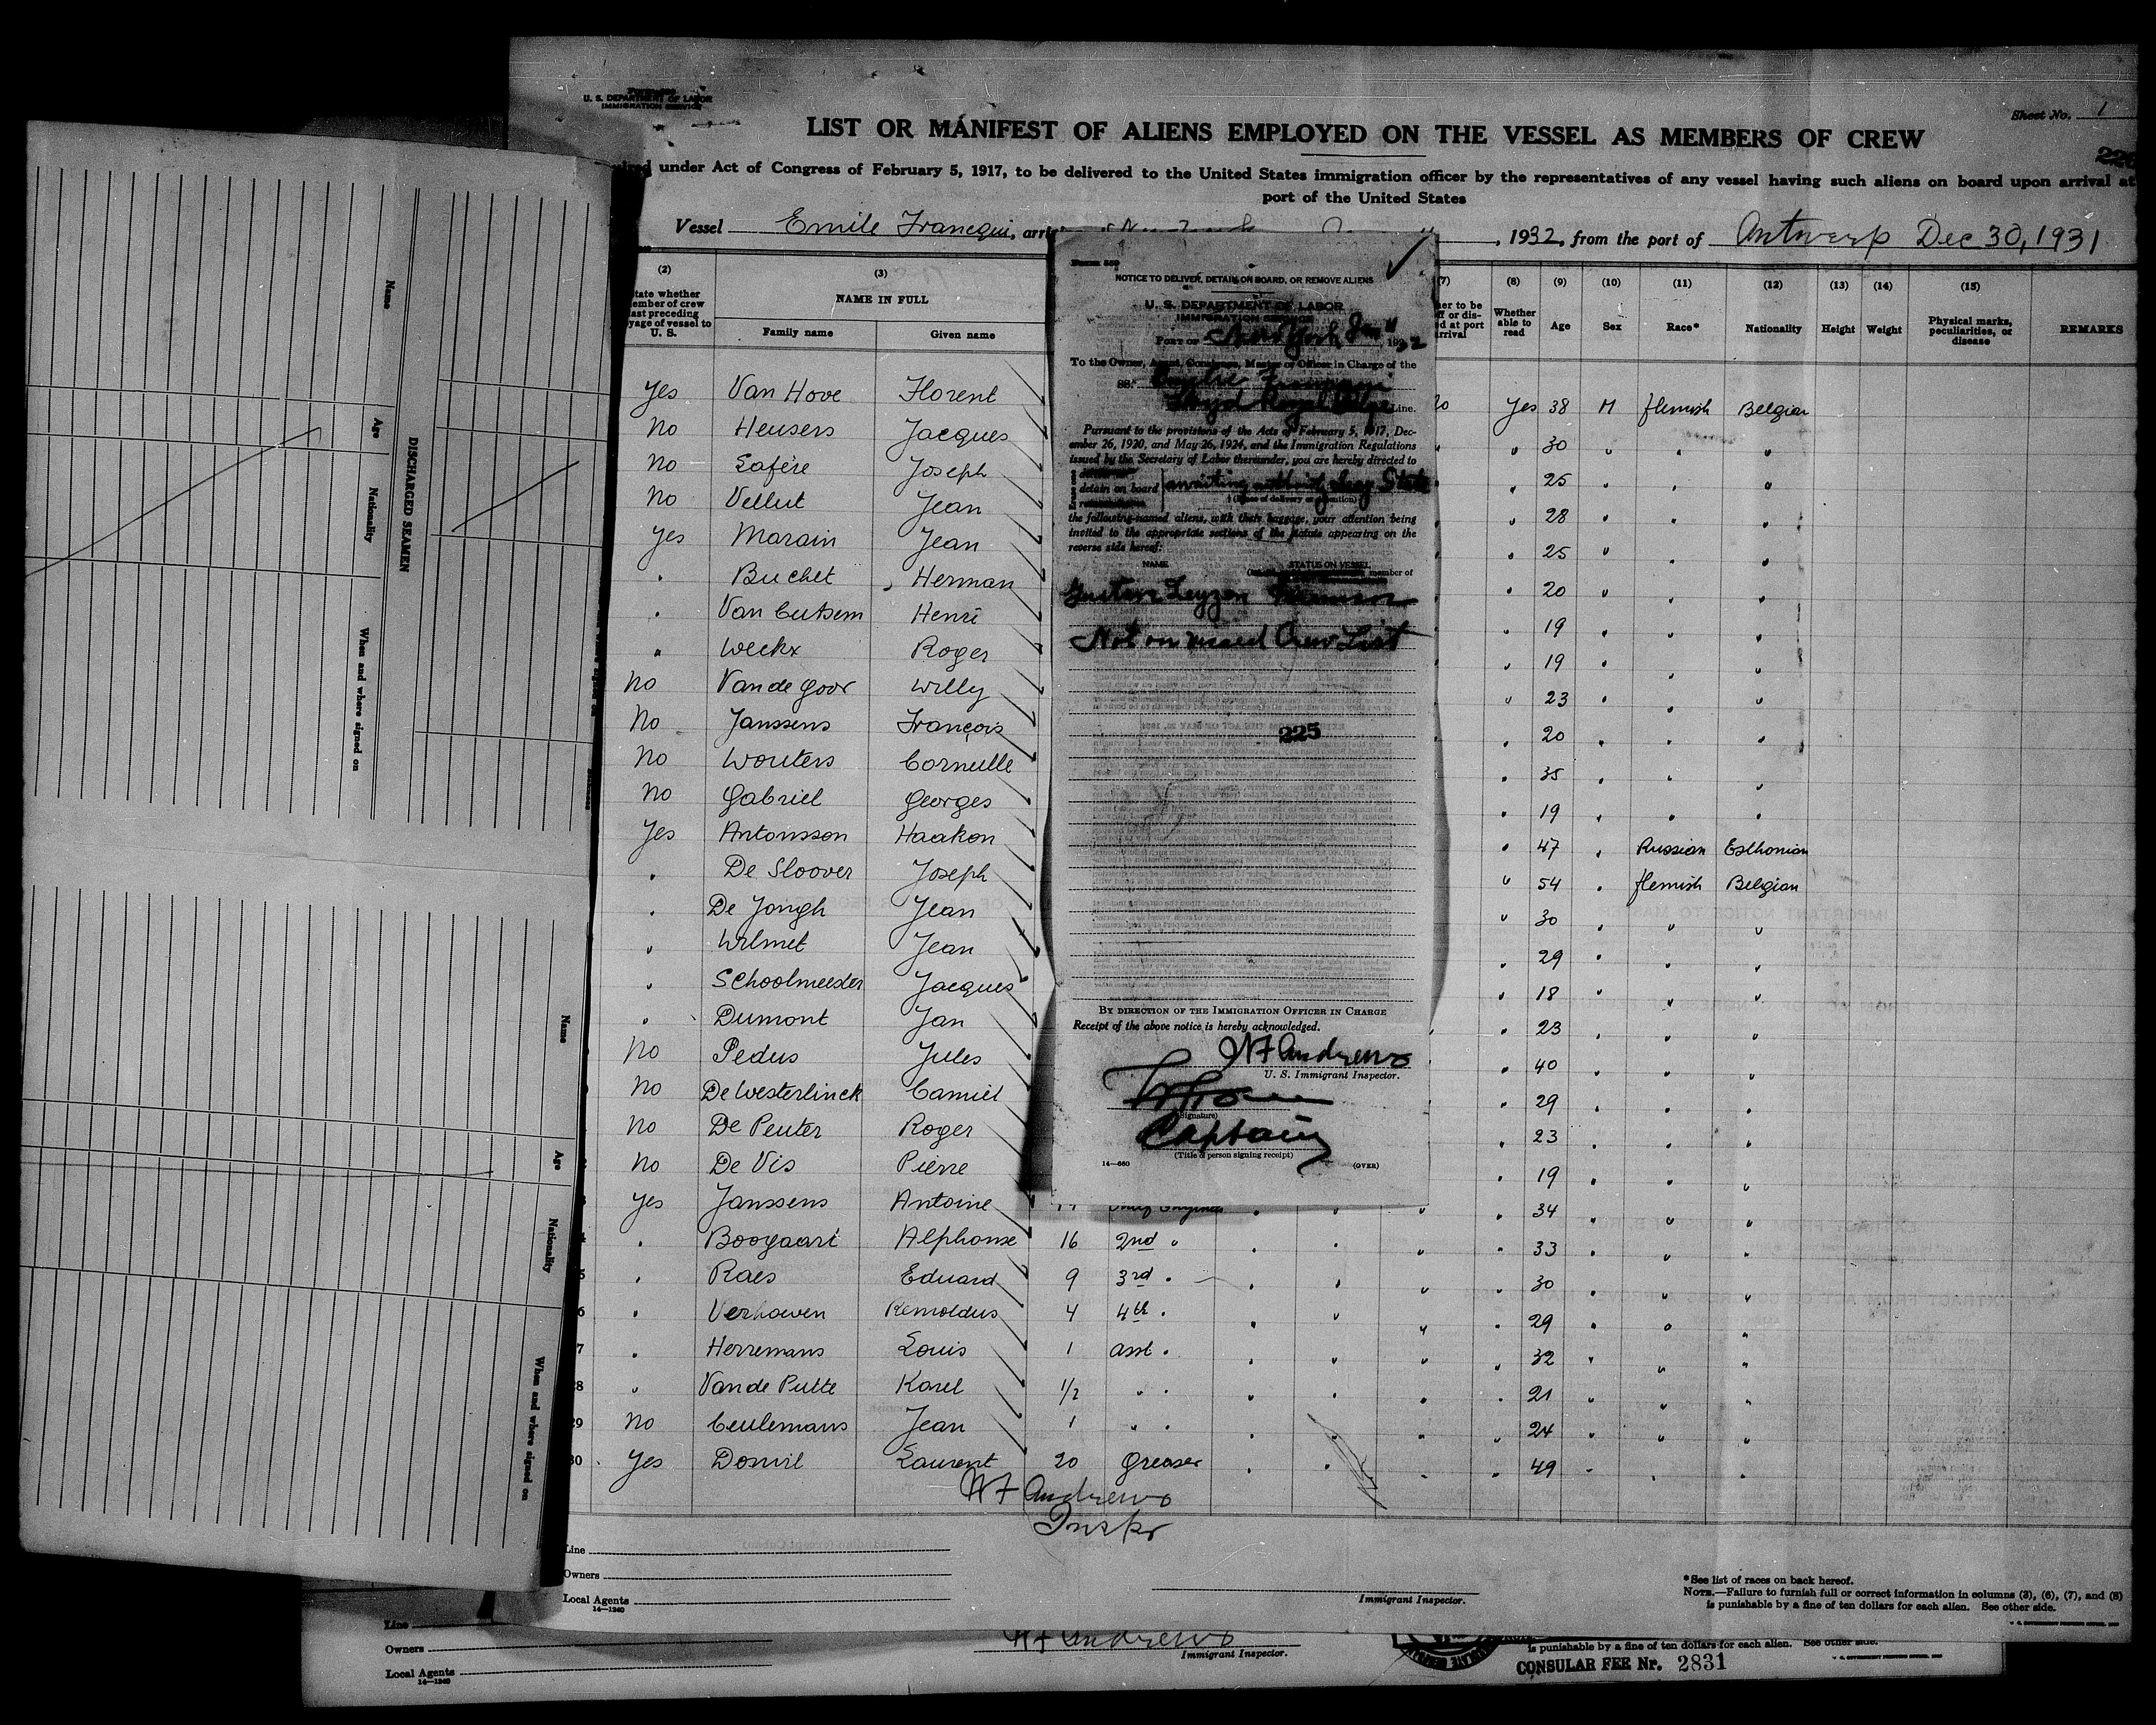 U. S. DEPARTMENT OF LABOR
IMMIGRATION SERVICE
Sheet No. 1
LIST OR MANIFEST OF ALIENS EMPLOYED ON THE VESSEL AS MEMBERS OF CREW
under Act of Congress of February 5, 1917, to be delivered to the United States immigration officer by the representatives of any vessel having such aliens on board upon arrival at
port of the United States
Vessel Emile Francqui, 1932, from the port of Antwerp Dec 30, 1931
(2) (3) (7) (8) (9) (10) (11) (12) (13) (14) (15)
NAME IN FULL
Family name Given name
Whether able to read Age Sex Race* Nationality Height Weight Physical marks, peculiarities, or disease REMARKS
Yes Van Hove Florent Yes 38 M flemish Belgian
No Heusers Jacques " 30 " " "
No Lafère Joseph " 25 " " "
No Vellut Jean " 28 " " "
Yes Marain Jean " 25 " " "
" Buchet Herman " 20 " " "
" Van Cutsem Henri " 19 " " "
" Weckx Roger " 19 " " "
No Van de Goor Willy " 23 " " "
No Janssens François " 20 " " "
No Wouters Corneille " 35 " " "
No Gabriel Georges " 19 " " "
Yes Antonsson Haakon " 47 " Russian Esthonian
" De Sloover Joseph " 54 " flemish Belgian
" De Jongh Jean " 30 " " "
" Wilmet Jean " 29 " " "
" Schoolmeester Jacques " 18 " " "
" Dumont Jan " 23 " " "
No Pedus Jules " 40 " " "
No De Westerlinck Camiel " 29 " " "
No De Peuter Roger " 23 " " "
No De Vis Pierre " 19 " " "
Yes Janssens Antoine " 34 " " "
" Boogaart Alphonse 16 2nd " " " " " 33 " " "
" Raes Eduard 9 3rd " " " " " 30 " " "
" Verhoven Remoldus 4 4th " " " " " 29 " " "
" Herremans Louis 1 asst " " " " " 32 " " "
" Van de Putte Karel 1/2 " " " " " " 21 " " "
29 No Ceulemans Jean 1 " " " " " " 24 " " "
30 Yes Domil Laurent 20 Greaser " " " " 49 " " "
W F Andrews
Inspr
Line
Owners
Local Agents
14—1240
Immigrant Inspector.
*See list of races on back hereof.
NOTE.—Failure to furnish full or correct information in columns (3), (6), (7), and (8)
is punishable by a fine of ten dollars for each alien. See other side.
NOTICE TO DELIVER, DETAIN ON BOARD, OR REMOVE ALIENS
U. S. DEPARTMENT OF LABOR
IMMIGRATION SERVICE
PORT OF New York Jan 11 1932
To the Owner, Agent, Consignee, Master or Officer in Charge of the
SS. Emile Francqui
Lloyd Royal Belge Line.
Pursuant to the provisions of the Acts of February 5, 1917, Dec-
ember 26, 1920, and May 26, 1924, and the Immigration Regulations
issued by the Secretary of Labor thereunder, you are hereby directed to
detain on board awaiting State
the following-named aliens, with their baggage, your attention being
invited to the appropriate sections of the statute appearing on the
reverse side hereof:
NAME STATUS ON VESSEL
member of
Gustave Leyzen
Not on visaed Crew List
225
BY DIRECTION OF THE IMMIGRATION OFFICER IN CHARGE
Receipt of the above notice is hereby acknowledged.
W F Andrews
U. S. Immigrant Inspector.
(Signature)
Captain
(Title of person signing receipt)
14—660 (OVER)
DISCHARGED SEAMEN
Name Age Nationality When and where signed on
Name Age Nationality When and where signed on
Line
Owners
Local Agents
14—1240
W F Andrews
Immigrant Inspector.
is punishable by a fine of ten dollars for each alien. See other side.
CONSULAR FEE Nr. 2831